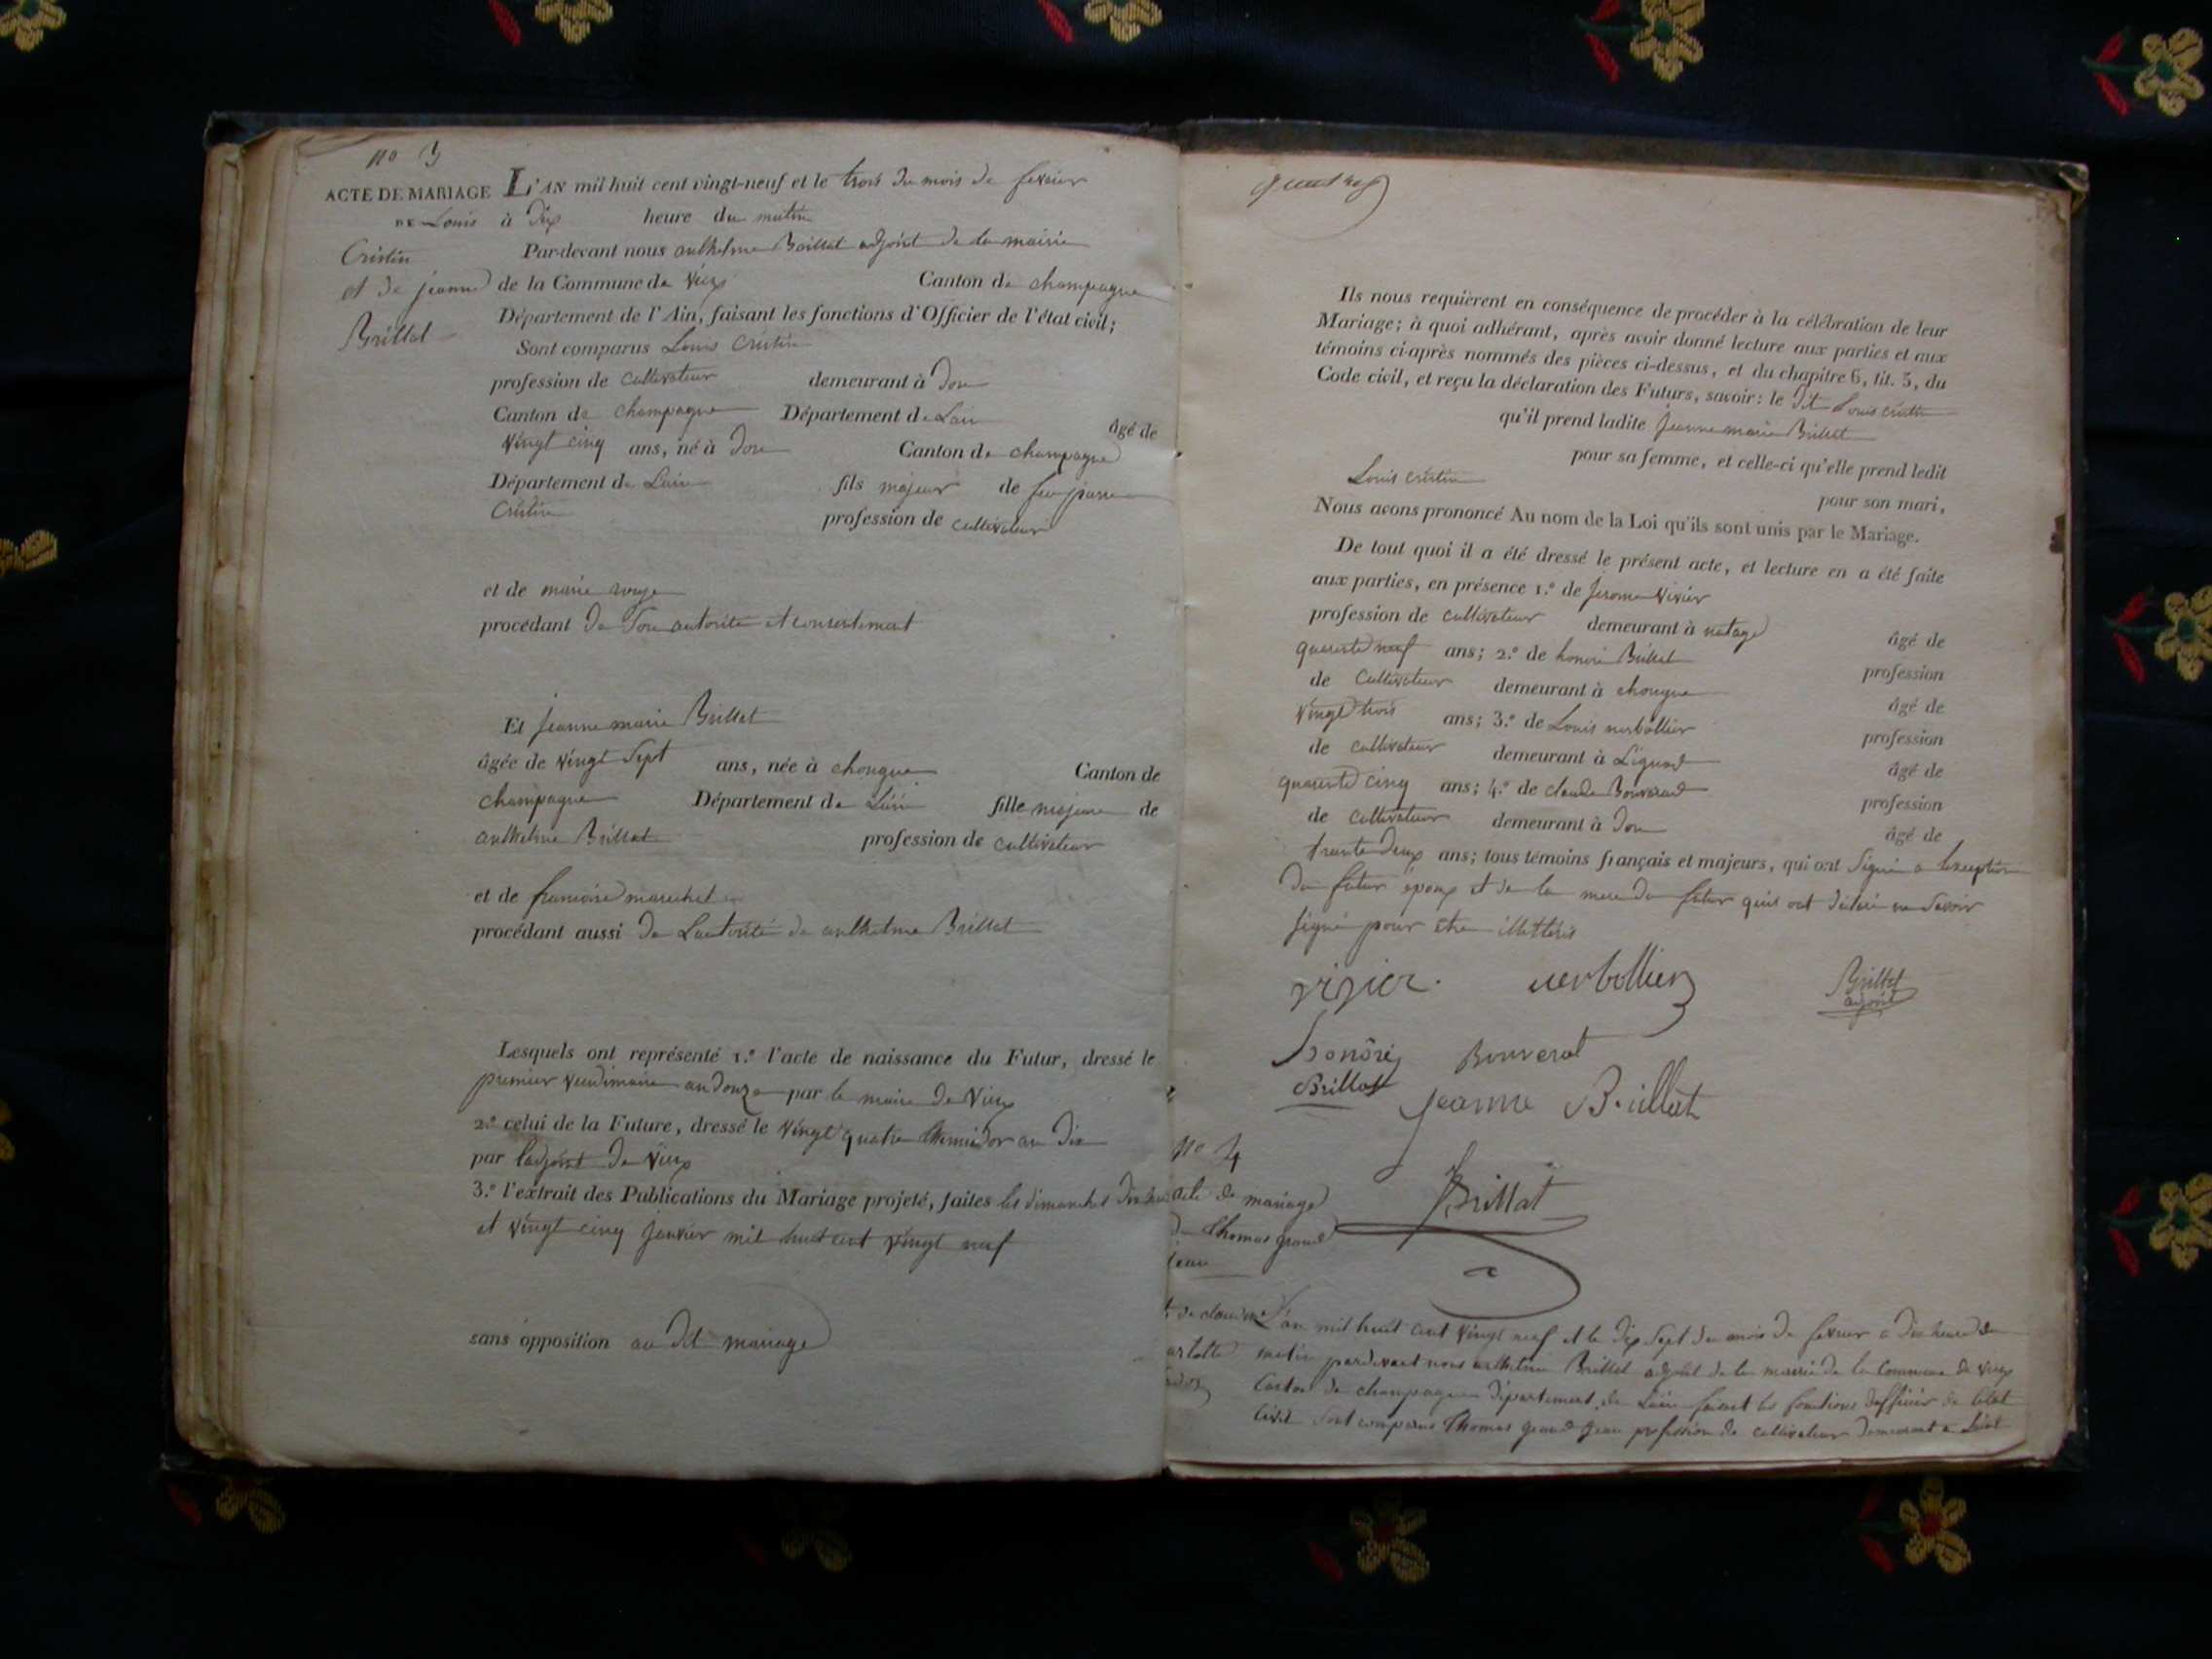 no 3
ACTE DE MARIAGE
DE Louis
Cristin
et de jeanne
Brillat
L'AN mil huit cent vingt-neuf et le trois du mois de fevrier
à dix heure du matin
Par-devant nous anthelme Brillat adjoint de la mairie
de la Commune de Vieux Canton de champagne
Département de l'Ain, faisant les fonctions d'Officier de l'état civil;
Sont comparus Louis Cristin
profession de cultivateur demeurant à Don
Canton de champagne Département de Lain âgé de
vingt cinq ans, né à Don Canton de champagne
Département de Lain fils majeur de feu pierre
Cristin profession de cultivateur
et de marie
procédant de Son autorité et consentement
Et jeanne marie Brillat
âgée de vingt Sept ans, née à chongne Canton de
champagne Département de Lain fille majeure de
anthelme Brillat profession de cultivateur
et de francoise marechal
procédant aussi de Lautorité de anthelme Brillat
Lesquels ont représenté 1.º l'acte de naissance du Futur, dressé le
premier vendimaire an douze par le maire de Vieux
2.º celui de la Future, dressé le vingt quatre thermidor an dix
par ladjoint de Vieux
3.º l'extrait des Publications du Mariage projeté, faites les dimanches dix huit
et vingt cinq janvier mil huit cent vingt neuf
sans opposition au dit mariage
Ils nous requièrent en conséquence de procéder à la célébration de leur
Mariage; à quoi adhérant, après avoir donné lecture aux parties et aux
témoins ci-après nommés des pièces ci-dessus, et du chapitre 6, tit. 5, du
Code civil, et reçu la déclaration des Futurs, savoir: le dit Louis cristin
qu'il prend ladite jeanne marie Brillat
pour sa femme, et celle-ci qu'elle prend ledit
Louis cristin pour son mari,
Nous avons prononcé Au nom de la Loi qu'ils sont unis par le Mariage.
De tout quoi il a été dressé le présent acte, et lecture en a été faite
aux parties, en présence 1.º de jerome Vivier
profession de cultivateur demeurant à nutage âgé de
quarente neuf ans; 2.º de honoré Brillat profession
de cultivateur demeurant à chongne âgé de
vingt trois ans; 3.º de Louis verbollier profession
de cultivateur demeurant à Lignod âgé de
quarente cinq ans; 4.º de claude Bonverat profession
de cultivateur demeurant à Don âgé de
trente deux ans; tous témoins français et majeurs, qui ont Signé a lexeption
du futur époux et de la mere du futur quis ont déclaré ne Savoir
Signé pour etre illettérés
vivier verbollier Brillat
adjoint
honôré Bonverat
Brillat
jeanne Brillat
Brillat
no 4
acte de mariage
de Thomas grand
jean
et de claudine
L'an mil huit cent vingt neuf et le dix Sept du mois de fevrier a dix heure du
matin pardevant nous anthelme Brillat adjoint de la mairie de la Commune de vieux
Canton de champagne département de Lain faisant les fonctions dofficier de letat
Civil Sont comparus Thomas grand jean profession de cultivateur demeurant a